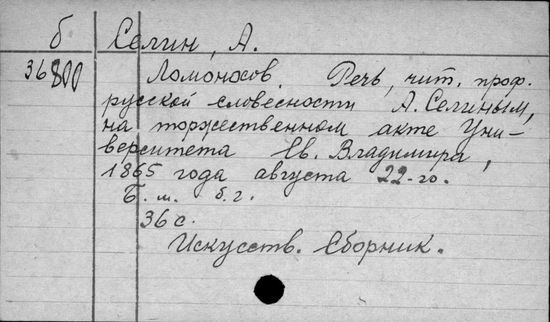 б Селин, А.
36800 Ломоносов. Речь, чит. проф.
русской словесности А. Селиным,
на торжественном акте Уни-
верситета Св. Владимира,
1865 года августа 22-го.
Б. м. б. г.
36 с.
Искусств. Сборник.